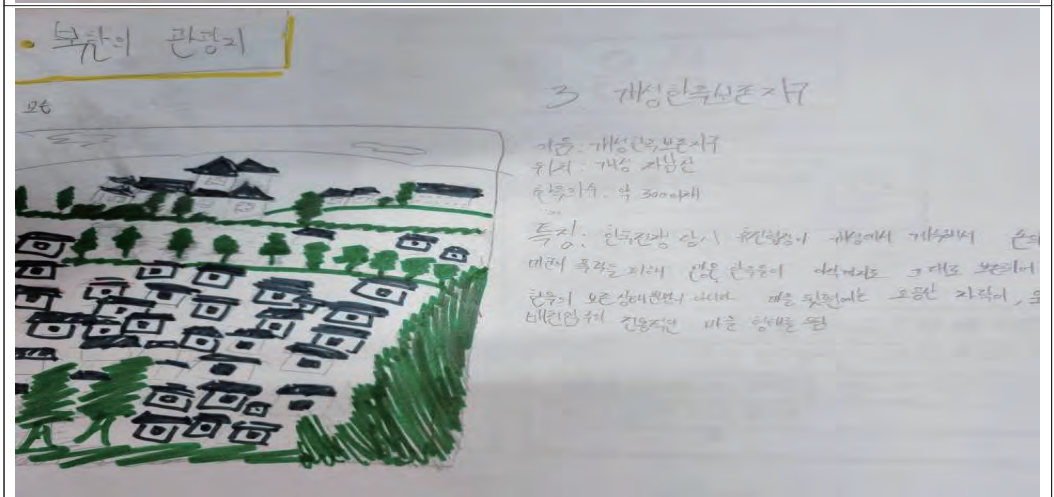 • 북한의 관광지
3 개성한옥보존지구
이름: 개성한옥보존지구
위치: 개성 자남산
한옥의 수: 약 300여채
특징: 한국전쟁 당시 휴전협상이 개성에서
미군의 폭격을 피해 많은 한옥들이 아직까지도 그대로 보존되어
한옥의 보존 상태 뿐만이 아니라 마을 뒷편에는 자락이,
배산임수의 전통적인 마을 형태를 띔